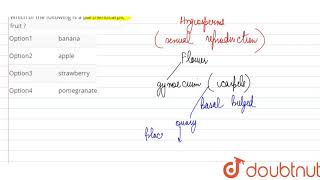 Which of the following is a parthenocarpic
fruit ?
Option1 banana
Option2 apple
Option3 strawberry
Option4 pomegranate
Angiosperms
(sexual reproduction)
Flower
gynoecium (carpel)
Basal bulged
ovary
doubtnut